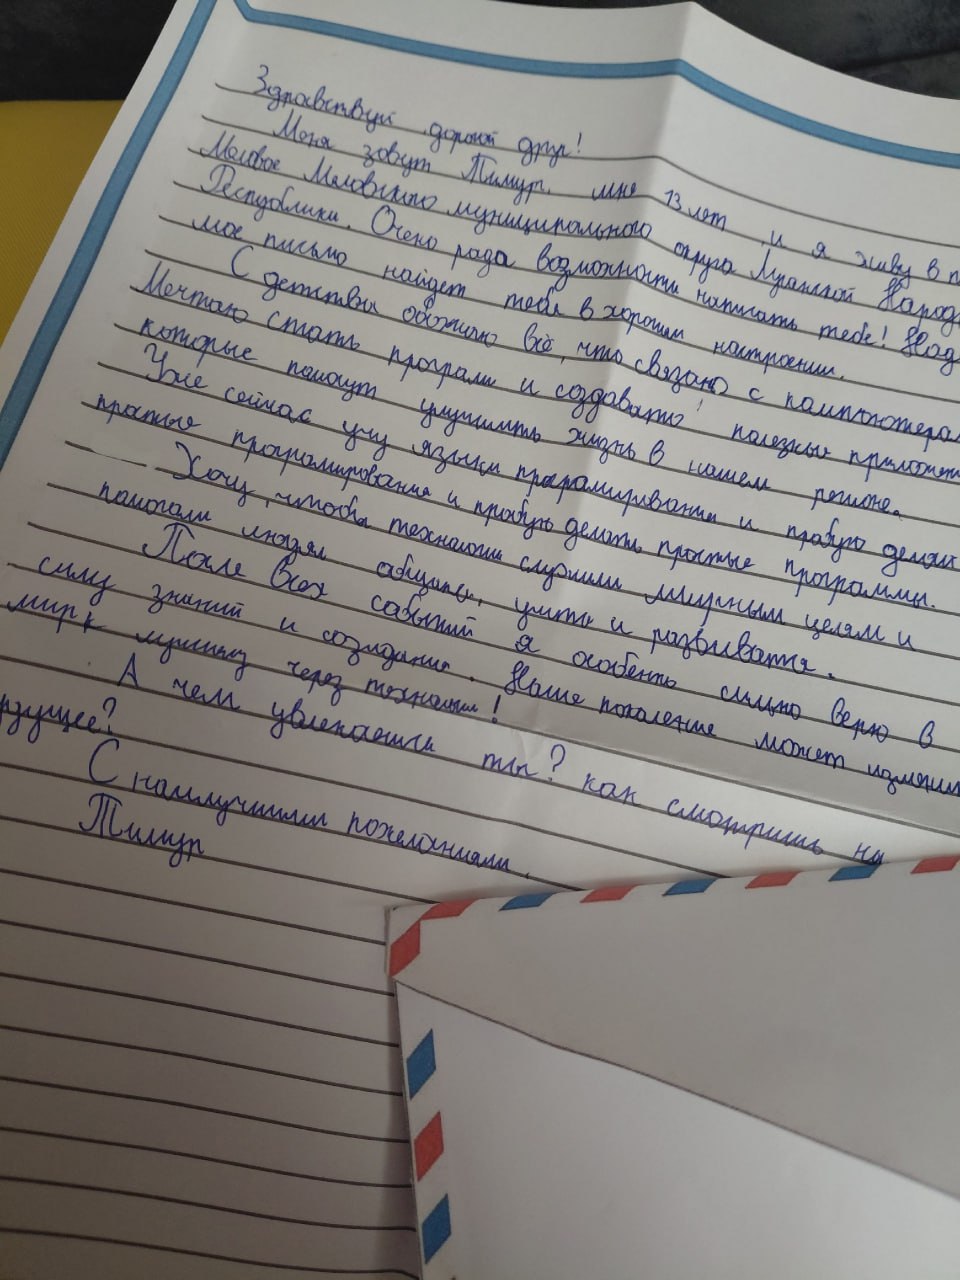 Здравствуй дорогой друг!
Меня зовут Тимур, мне 13 лет и я живу в п
Меловое Меловского муниципального округа Луганской Народ
Республики. Очень рада возможности написать тебе! Над
мое письмо найдет тебя в хорошем настроении.
С детства обожаю всё, что связано с компьютера
Мечтаю стать програм и создавать полезные приложен
которые помогут улучшить жизнь в нашем регионе.
Уже сейчас учу языки програмирования и пробую делать
простые програмирования и пробую делать простые программы.
Хочу, чтобы технологии служили мирным целям и
помогали людям общаться, учится и развиватся.
После всех событий я особенно сильно верю в
силу знаний и созидания. Наше поколение может изменить
мир к лучшему через технологии!
А чем увлекаешься ты? как смотришь на
будущее?
С наилучшими пожеланиями.
Тимур